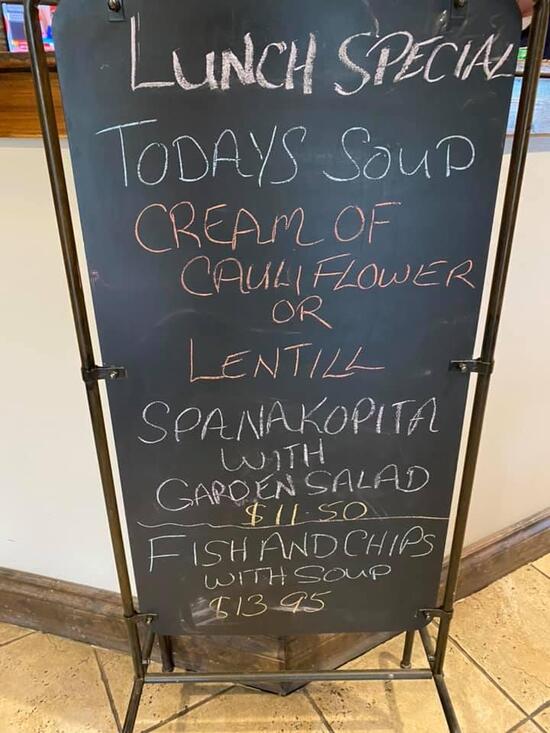 LUNCH SPECIAL
TODAYS SOUP
CREAM OF
CAULIFLOWER
OR
LENTILL
SPANAKOPITA
WITH
GARDEN SALAD
$11.50
FISH AND CHIPS
WITH SOUP
$13.95